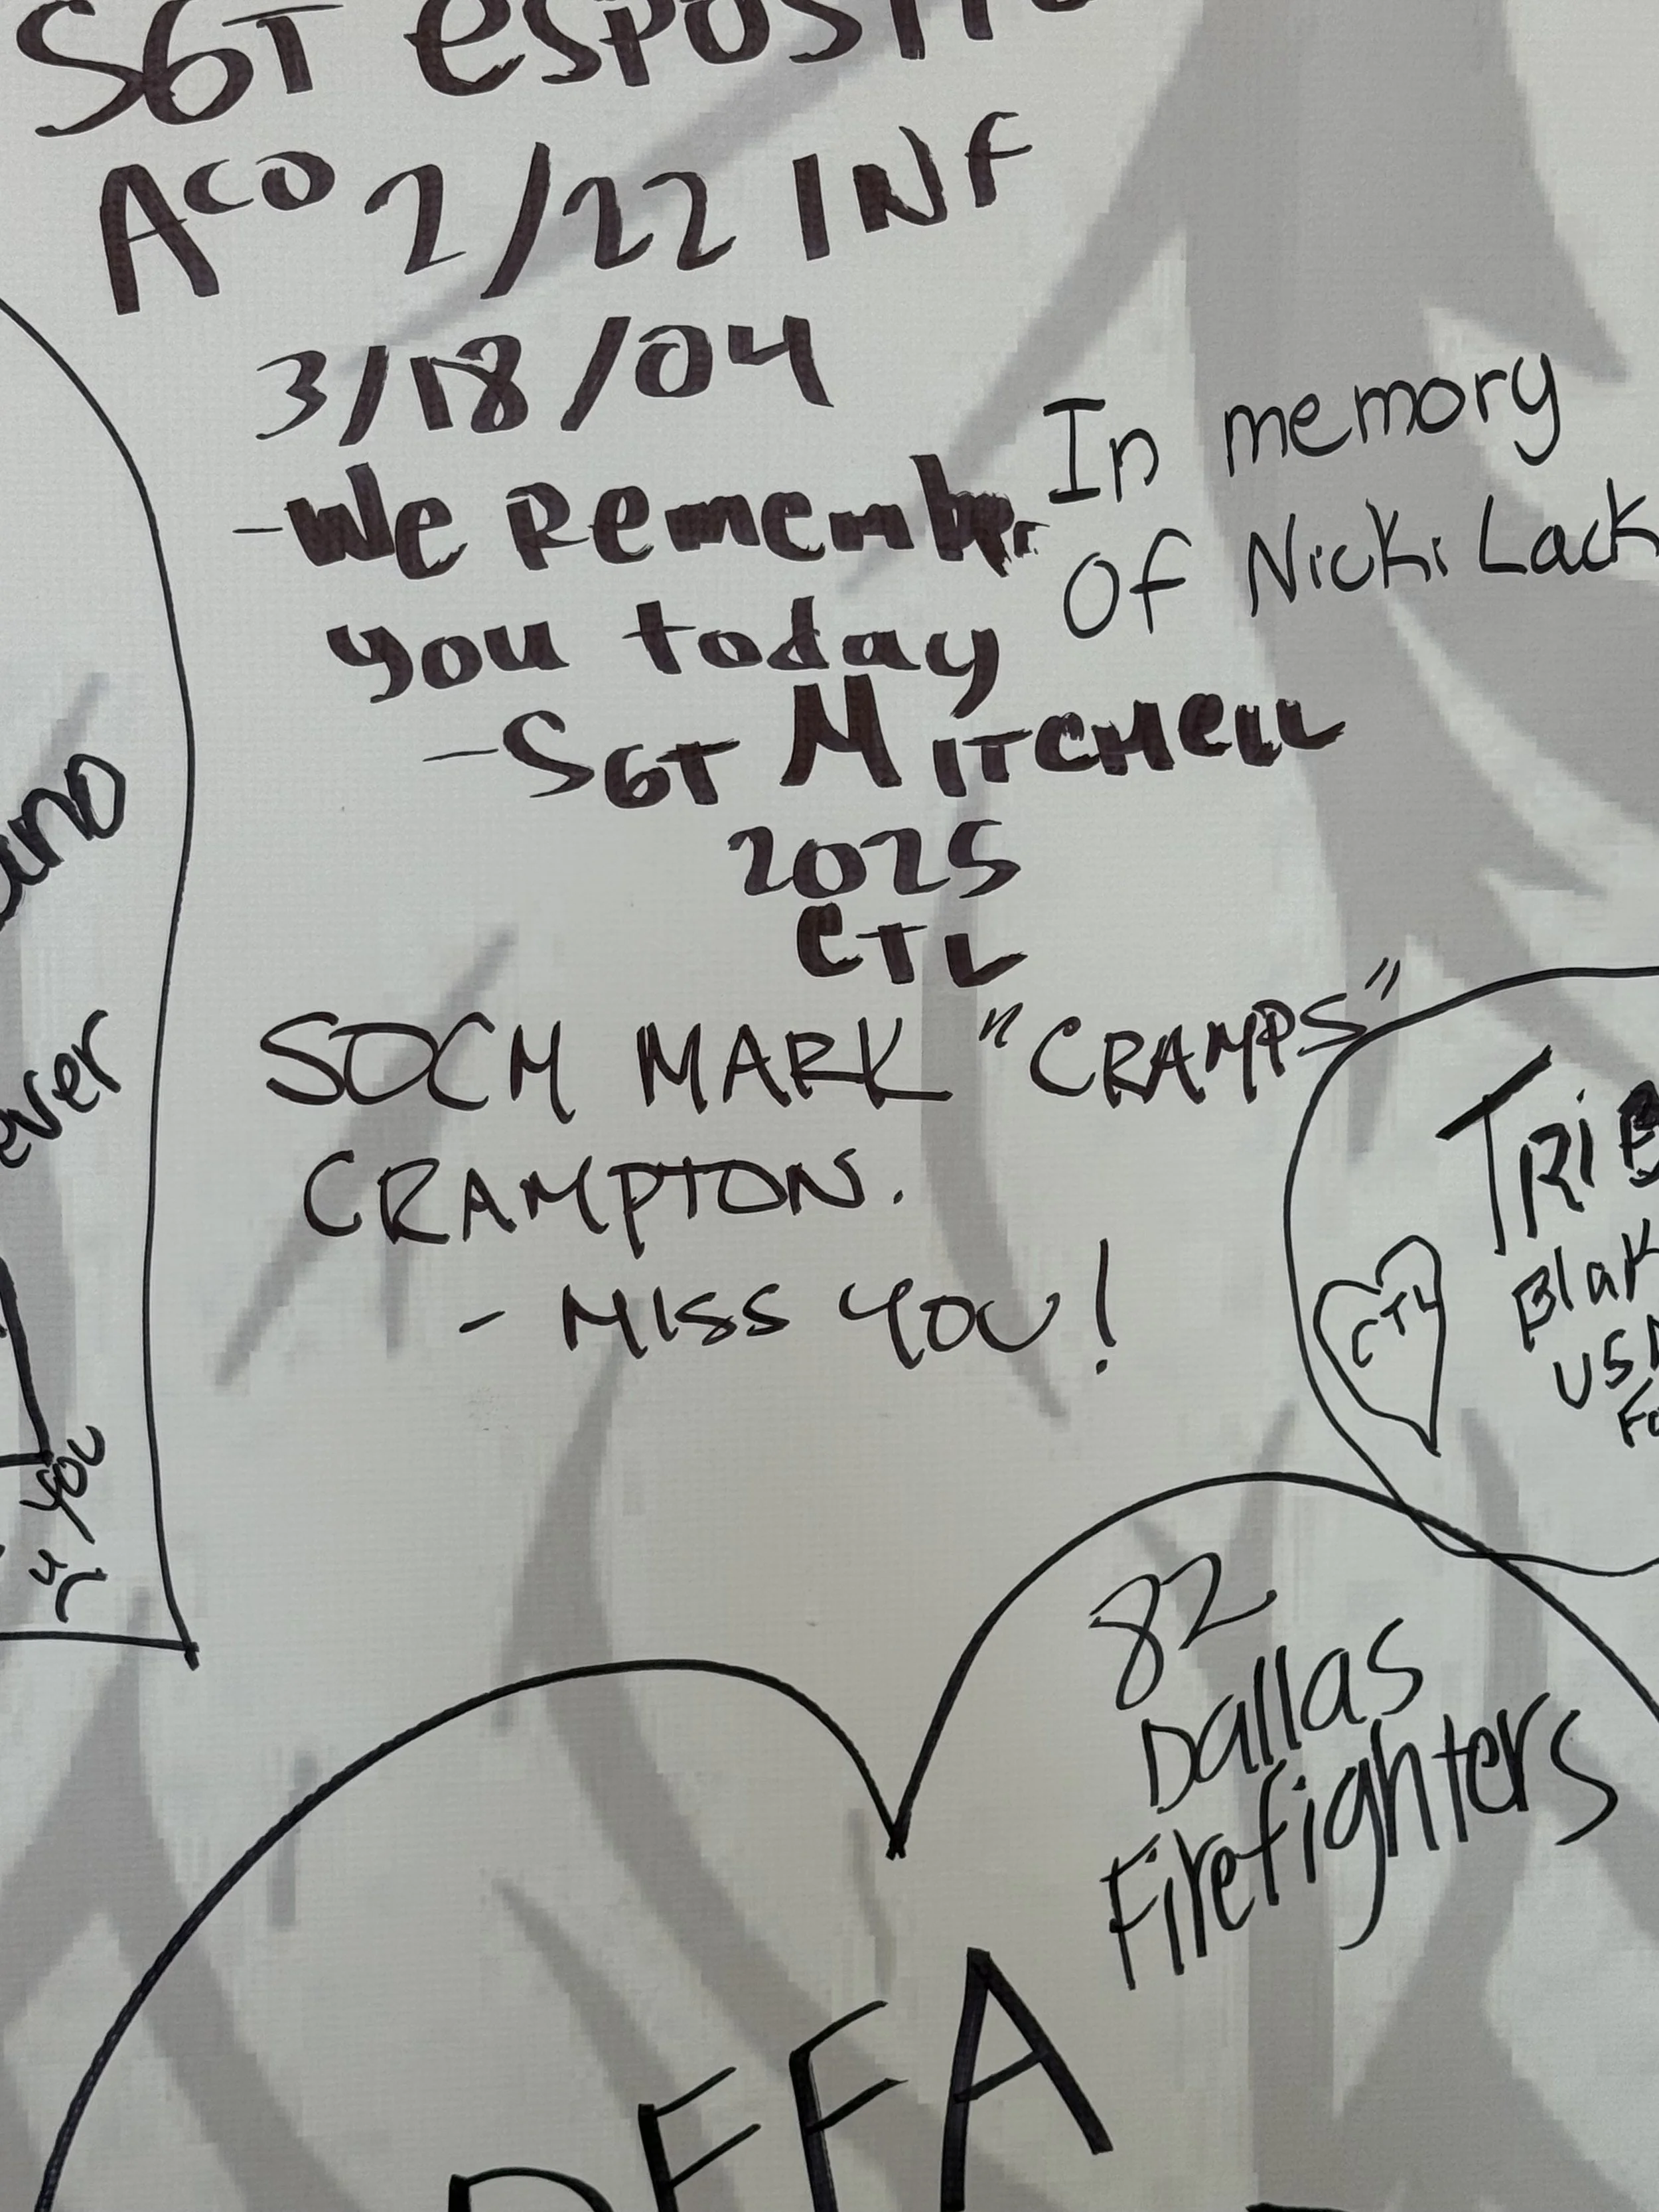 SGT ESPOSITO
ACO 2/22 INF
3/18/04
-We Remember
you today
-SGT MITCHELL
2025
CTL
In memory
Of Nicki Lack
SOCM MARK "CRAMPS"
CRAMPTON.
- MISS YOU!
ever
you
CTL
82
Dallas
Firefighters
DFFA